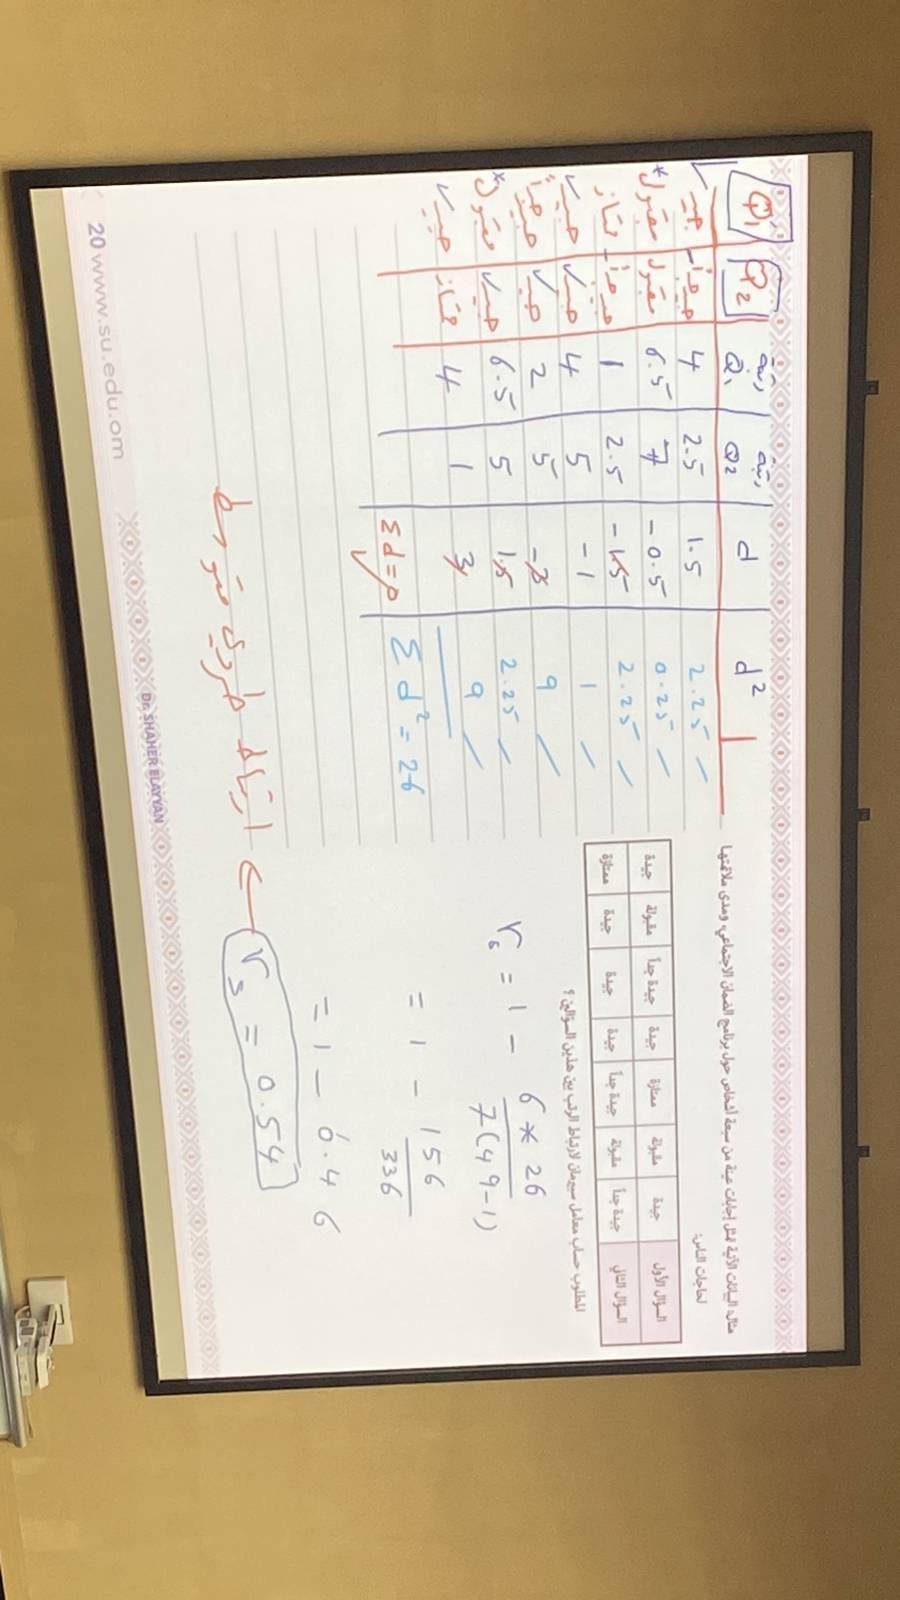 مثال: البيانات الآتية تمثل إجابات عينة من سبعة أشخاص حول برنامج الضمان الاجتماعي ومدى ملائمتها
لحاجات الناس:
السؤال الأول جيدة مقبولة ممتازة جيدة جيدة جداً مقبولة جيدة
السؤال الثاني جيدة جداً مقبولة جيدة جداً جيدة جيدة جيدة ممتازة
المطلوب حساب معامل سبيرمان لارتباط الرتب بين هذين السؤالين ؟
Q1 Q2 رتبة Q1 رتبة Q2 d d²
جيد جيد جداً 4 2.5 1.5 2.25
* مقبول مقبول 6.5 7 -0.5 0.25
ممتاز جيد جداً 1 2.5 -1.5 2.25
جيد جيد 4 5 -1 1
جيد جداً جيد 2 5 -3 9
* مقبول جيد 6.5 5 1.5 2.25
جيد ممتاز 4 1 3 9
Σd=0 Σd² = 26
rs = 1 - 6*26 / 7(49-1)
= 1 - 156 / 336
= 1 - 0.46
rs = 0.54 ← ارتباط طردي متوسط
20 www.su.edu.om
Dr. SHAHER ELAYYAN